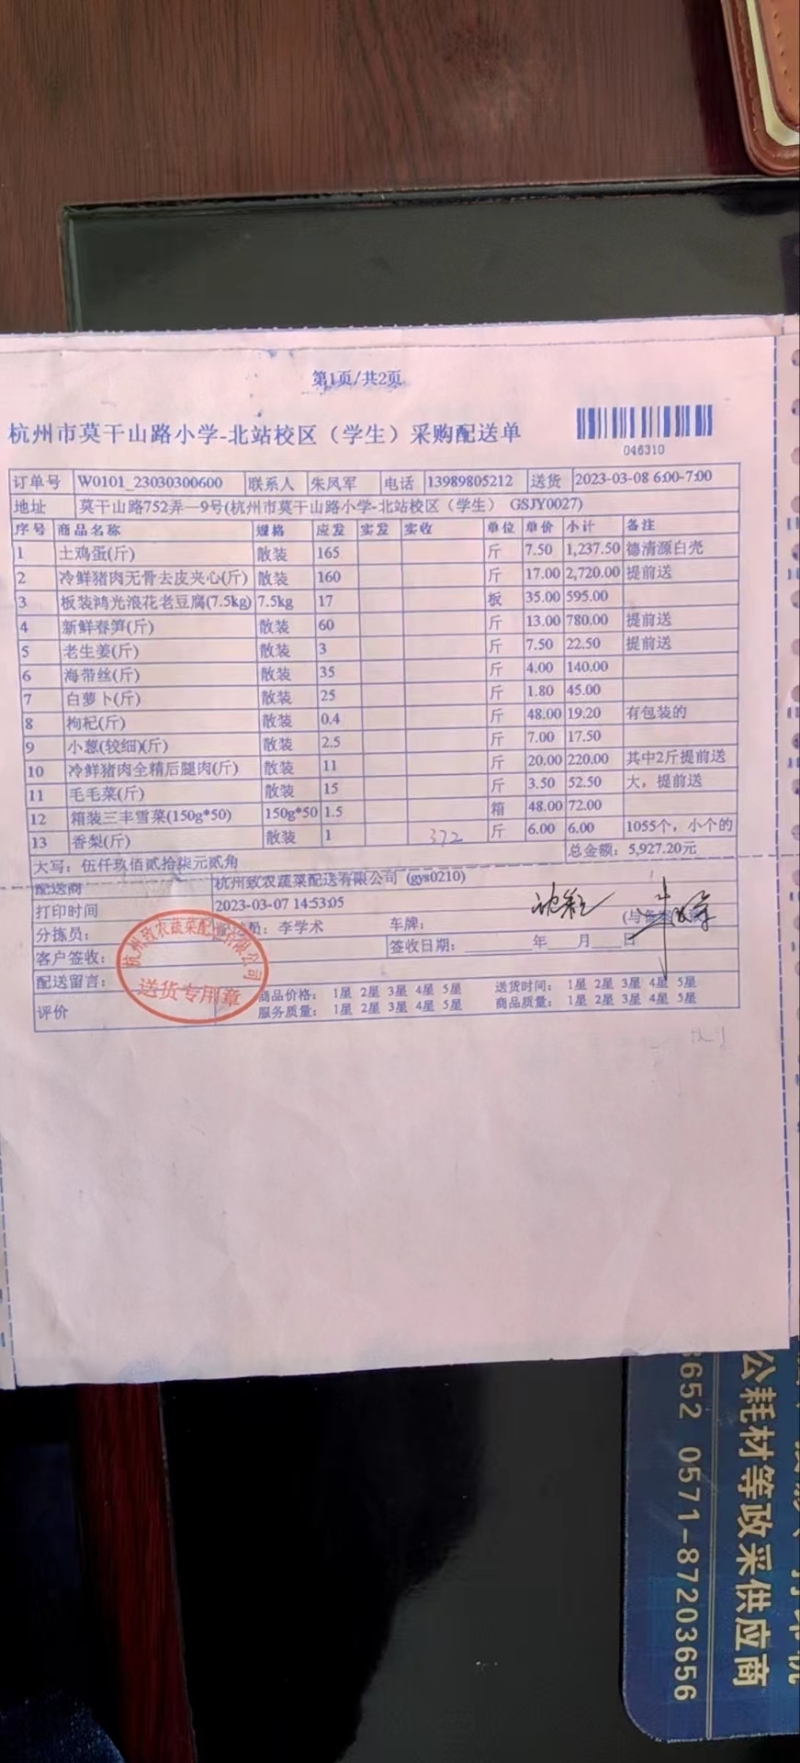 第1页/共2页
杭州市莫干山路小学-北站校区（学生）采购配送单
046310
订单号 W0101_23030300600 联系人 朱凤军 电话 13989805212 送货 2023-03-08 6:00-7:00
地址 莫干山路752弄—9号(杭州市莫干山路小学-北站校区（学生） GSJY0027)
序号 商品名称 规格 应发 实发 实收 单位 单价 小计 备注
1 土鸡蛋(斤) 散装 165 斤 7.50 1,237.50 德清源白壳
2 冷鲜猪肉无骨去皮夹心(斤) 散装 160 斤 17.00 2,720.00 提前送
3 板装鸿光浪花老豆腐(7.5kg) 7.5kg 17 板 35.00 595.00
4 新鲜春笋(斤) 散装 60 斤 13.00 780.00 提前送
5 老生姜(斤) 散装 3 斤 7.50 22.50 提前送
6 海带丝(斤) 散装 35 斤 4.00 140.00
7 白萝卜(斤) 散装 25 斤 1.80 45.00
8 枸杞(斤) 散装 0.4 斤 48.00 19.20 有包装的
9 小葱(较细)(斤) 散装 2.5 斤 7.00 17.50
10 冷鲜猪肉全精后腿肉(斤) 散装 11 斤 20.00 220.00 其中2斤提前送
11 毛毛菜(斤) 散装 15 斤 3.50 52.50 大，提前送
12 箱装三丰雪菜(150g*50) 150g*50 1.5 箱 48.00 72.00
13 香梨(斤) 散装 1 372 斤 6.00 6.00 1055个，小个的
大写：伍仟玖佰贰拾柒元贰角 总金额：5,927.20元
配送商 杭州致农蔬菜配送有限公司 (gys0210)
打印时间 2023-03-07 14:53:05
分拣员： 员：李学术 车牌：
客户签收： 签收日期： 年 月 日
配送留言：
评价 商品价格： 1星 2星 3星 4星 5星 送货时间： 1星 2星 3星 4星 5星
服务质量： 1星 2星 3星 4星 5星 商品质量： 1星 2星 3星 4星 5星
杭州致农蔬菜配送有限公司
送货专用章
公耗材等政采供应商
3652 0571-87203656